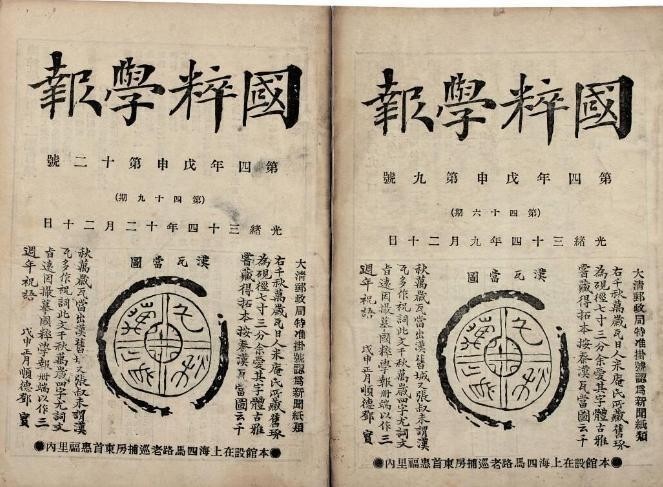 國粹學報
第四年戊申第十二號
(第四十九期)
光緒三十四年十二月二十日
大清郵政局特准掛號認爲新聞紙類
漢瓦當圖
右千秋萬歲瓦日人米庵氏所藏舊琢
為硯徑七寸三分余愛其字體古雅
嘗藏得拓本按秦漢瓦當圖云千
秋萬歲瓦當出漢舊城又張叔未謂漢
瓦多作祝詞此文千秋萬歲四字尤詞文
皆遠因撮摹國粹學報冊端以作三
週年祝語 戊申正月順德鄧實
●本館設在上海四馬路老巡捕房東首惠福里內●
國粹學報
第四年戊申第九號
(第四十六期)
光緒三十四年九月二十日
大清郵政局特准掛號認爲新聞紙類
漢瓦當圖
右千秋萬歲瓦日人米庵氏所藏舊琢
為硯徑七寸三分余愛其字體古雅
嘗藏得拓本按秦漢瓦當圖云千
秋萬歲瓦當出漢舊城又張叔未謂漢
瓦多作祝詞此文千秋萬歲四字尤詞文
皆遠因撮摹國粹學報冊端以作三
週年祝語 戊申正月順德鄧實
●本館設在上海四馬路老巡捕房東首惠福里內●